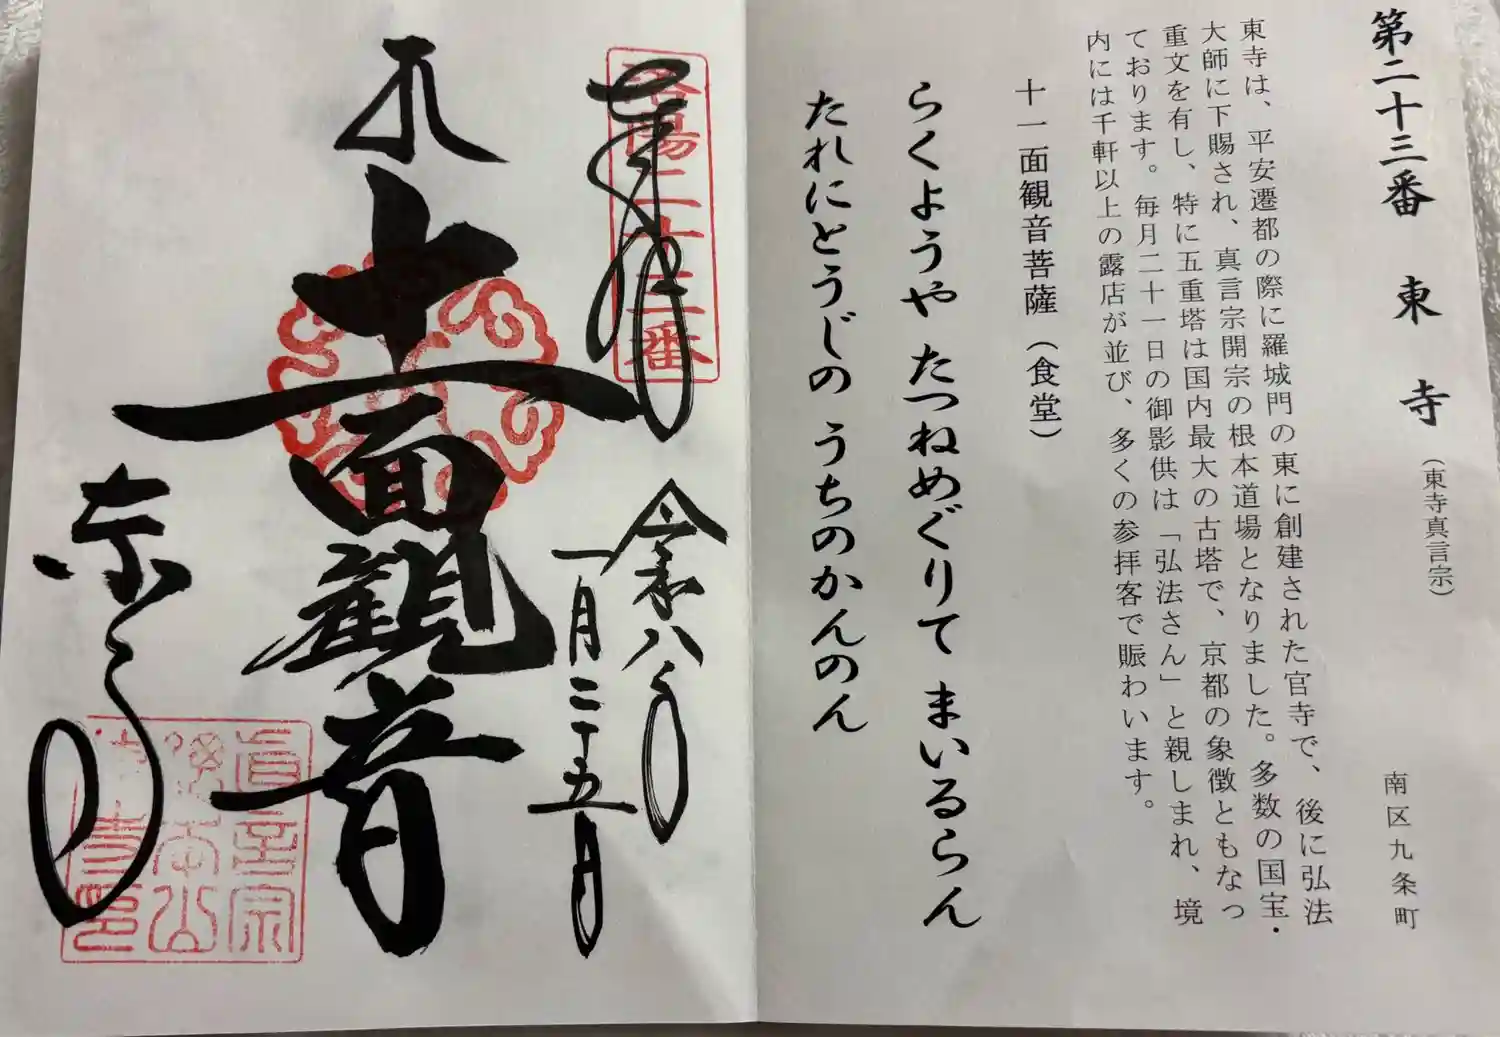 第二十三番 東寺
（東寺真言宗）
南区九条町
東寺は、平安遷都の際に羅城門の東に創建された官寺で、後に弘法
大師に下賜され、真言宗開宗の根本道場となりました。多数の国宝・
重文を有し、特に五重塔は国内最大の古塔で、京都の象徴ともなっ
ております。毎月二十一日の御影供は「弘法さん」と親しまれ、境
内には千軒以上の露店が並び、多くの参拝客で賑わいます。
十一面観音菩薩（食堂）
らくようや たつねめぐりて まいるらん
たれにとうじの うちのかんのん
洛陽二十三番
奉拝
令和八年
一月二十五日
十一面観音
東寺